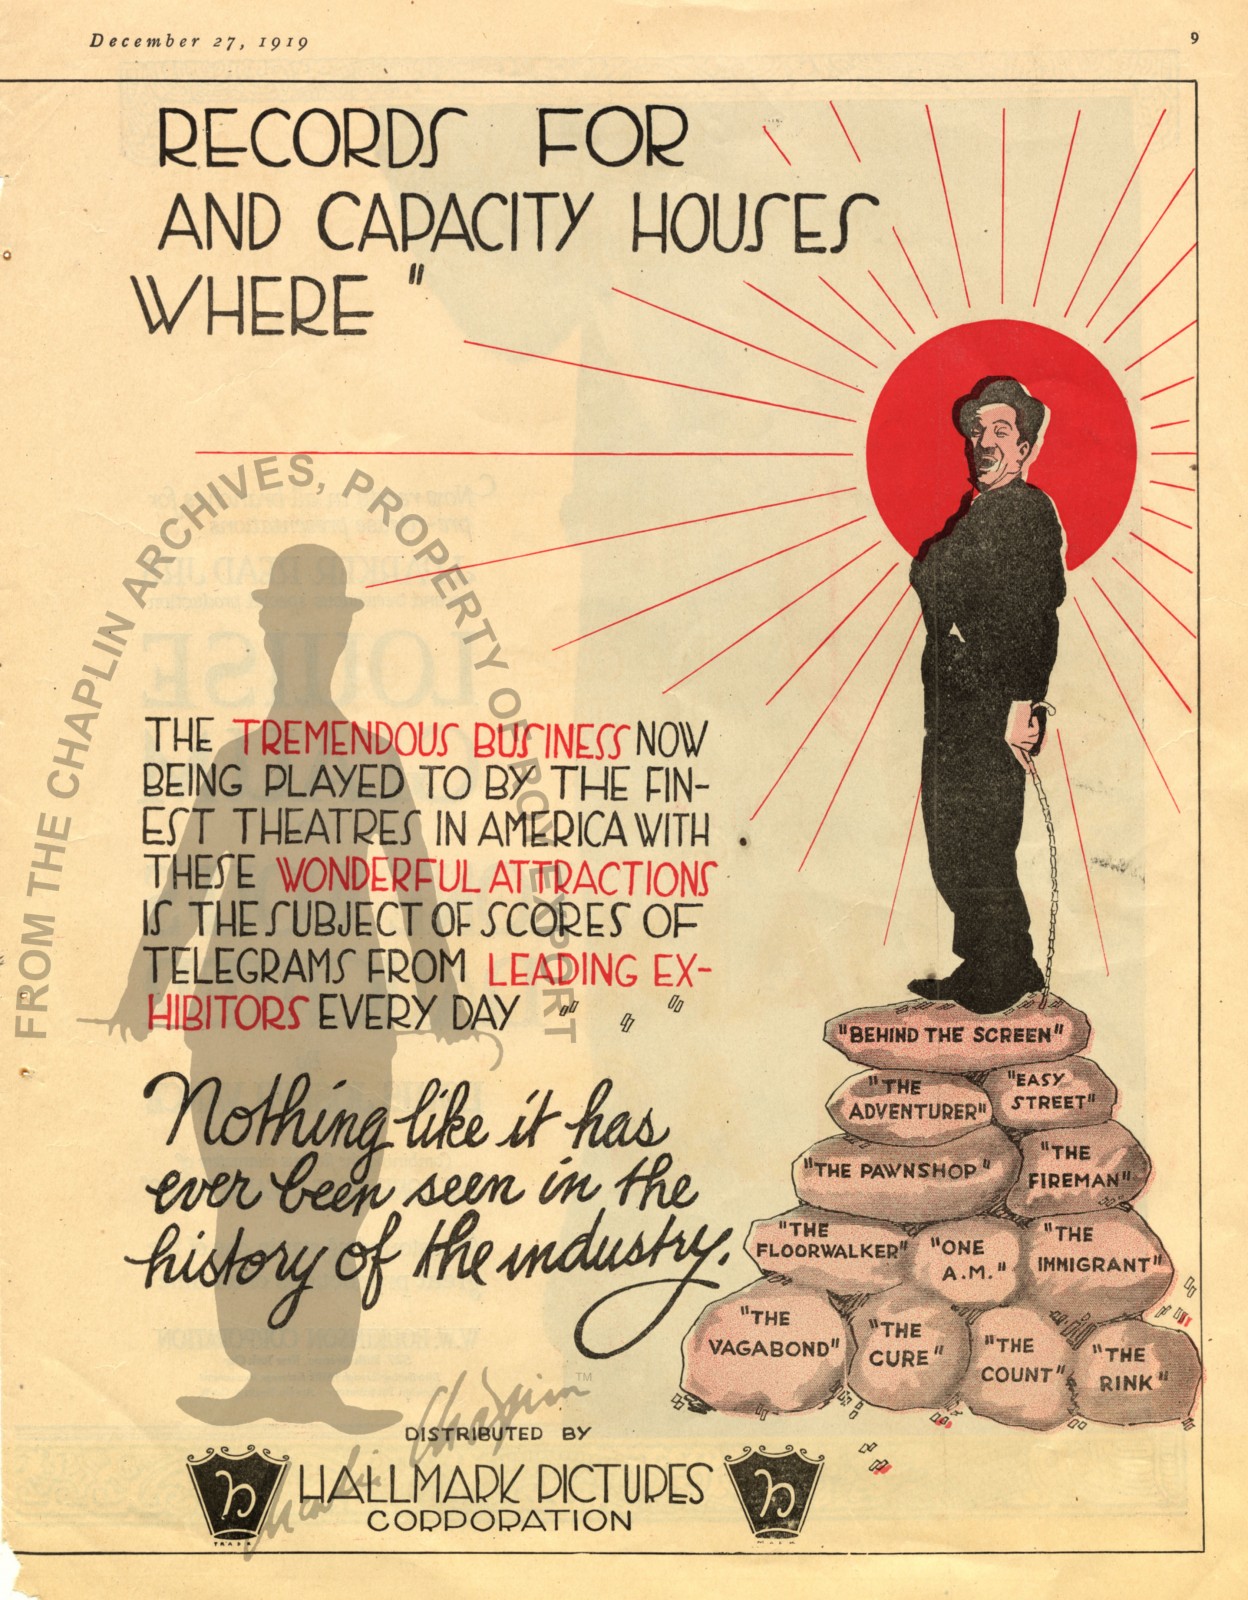 December 27, 1919
9
RECORDS FOR
AND CAPACITY HOUSES
WHERE "
FROM THE CHAPLIN ARCHIVES, PROPERTY OF ROY EXPORT
THE TREMENDOUS BUSINESS NOW
BEING PLAYED TO BY THE FIN-
EST THEATRES IN AMERICA WITH
THESE WONDERFUL ATTRACTIONS
IS THE SUBJECT OF SCORES OF
TELEGRAMS FROM LEADING EX-
HIBITORS EVERY DAY
Nothing like it has
ever been seen in the
history of the industry.
"BEHIND THE SCREEN"
"THE
ADVENTURER"
"EASY
STREET"
"THE PAWNSHOP"
"THE
FIREMAN"
"THE
FLOORWALKER"
"ONE
A.M."
"THE
IMMIGRANT"
"THE
VAGABOND"
"THE
CURE"
"THE
COUNT"
"THE
RINK"
Charlie Chaplin TM
DISTRIBUTED BY
h
HALLMARK PICTURES
CORPORATION
h
TRADE
MARK